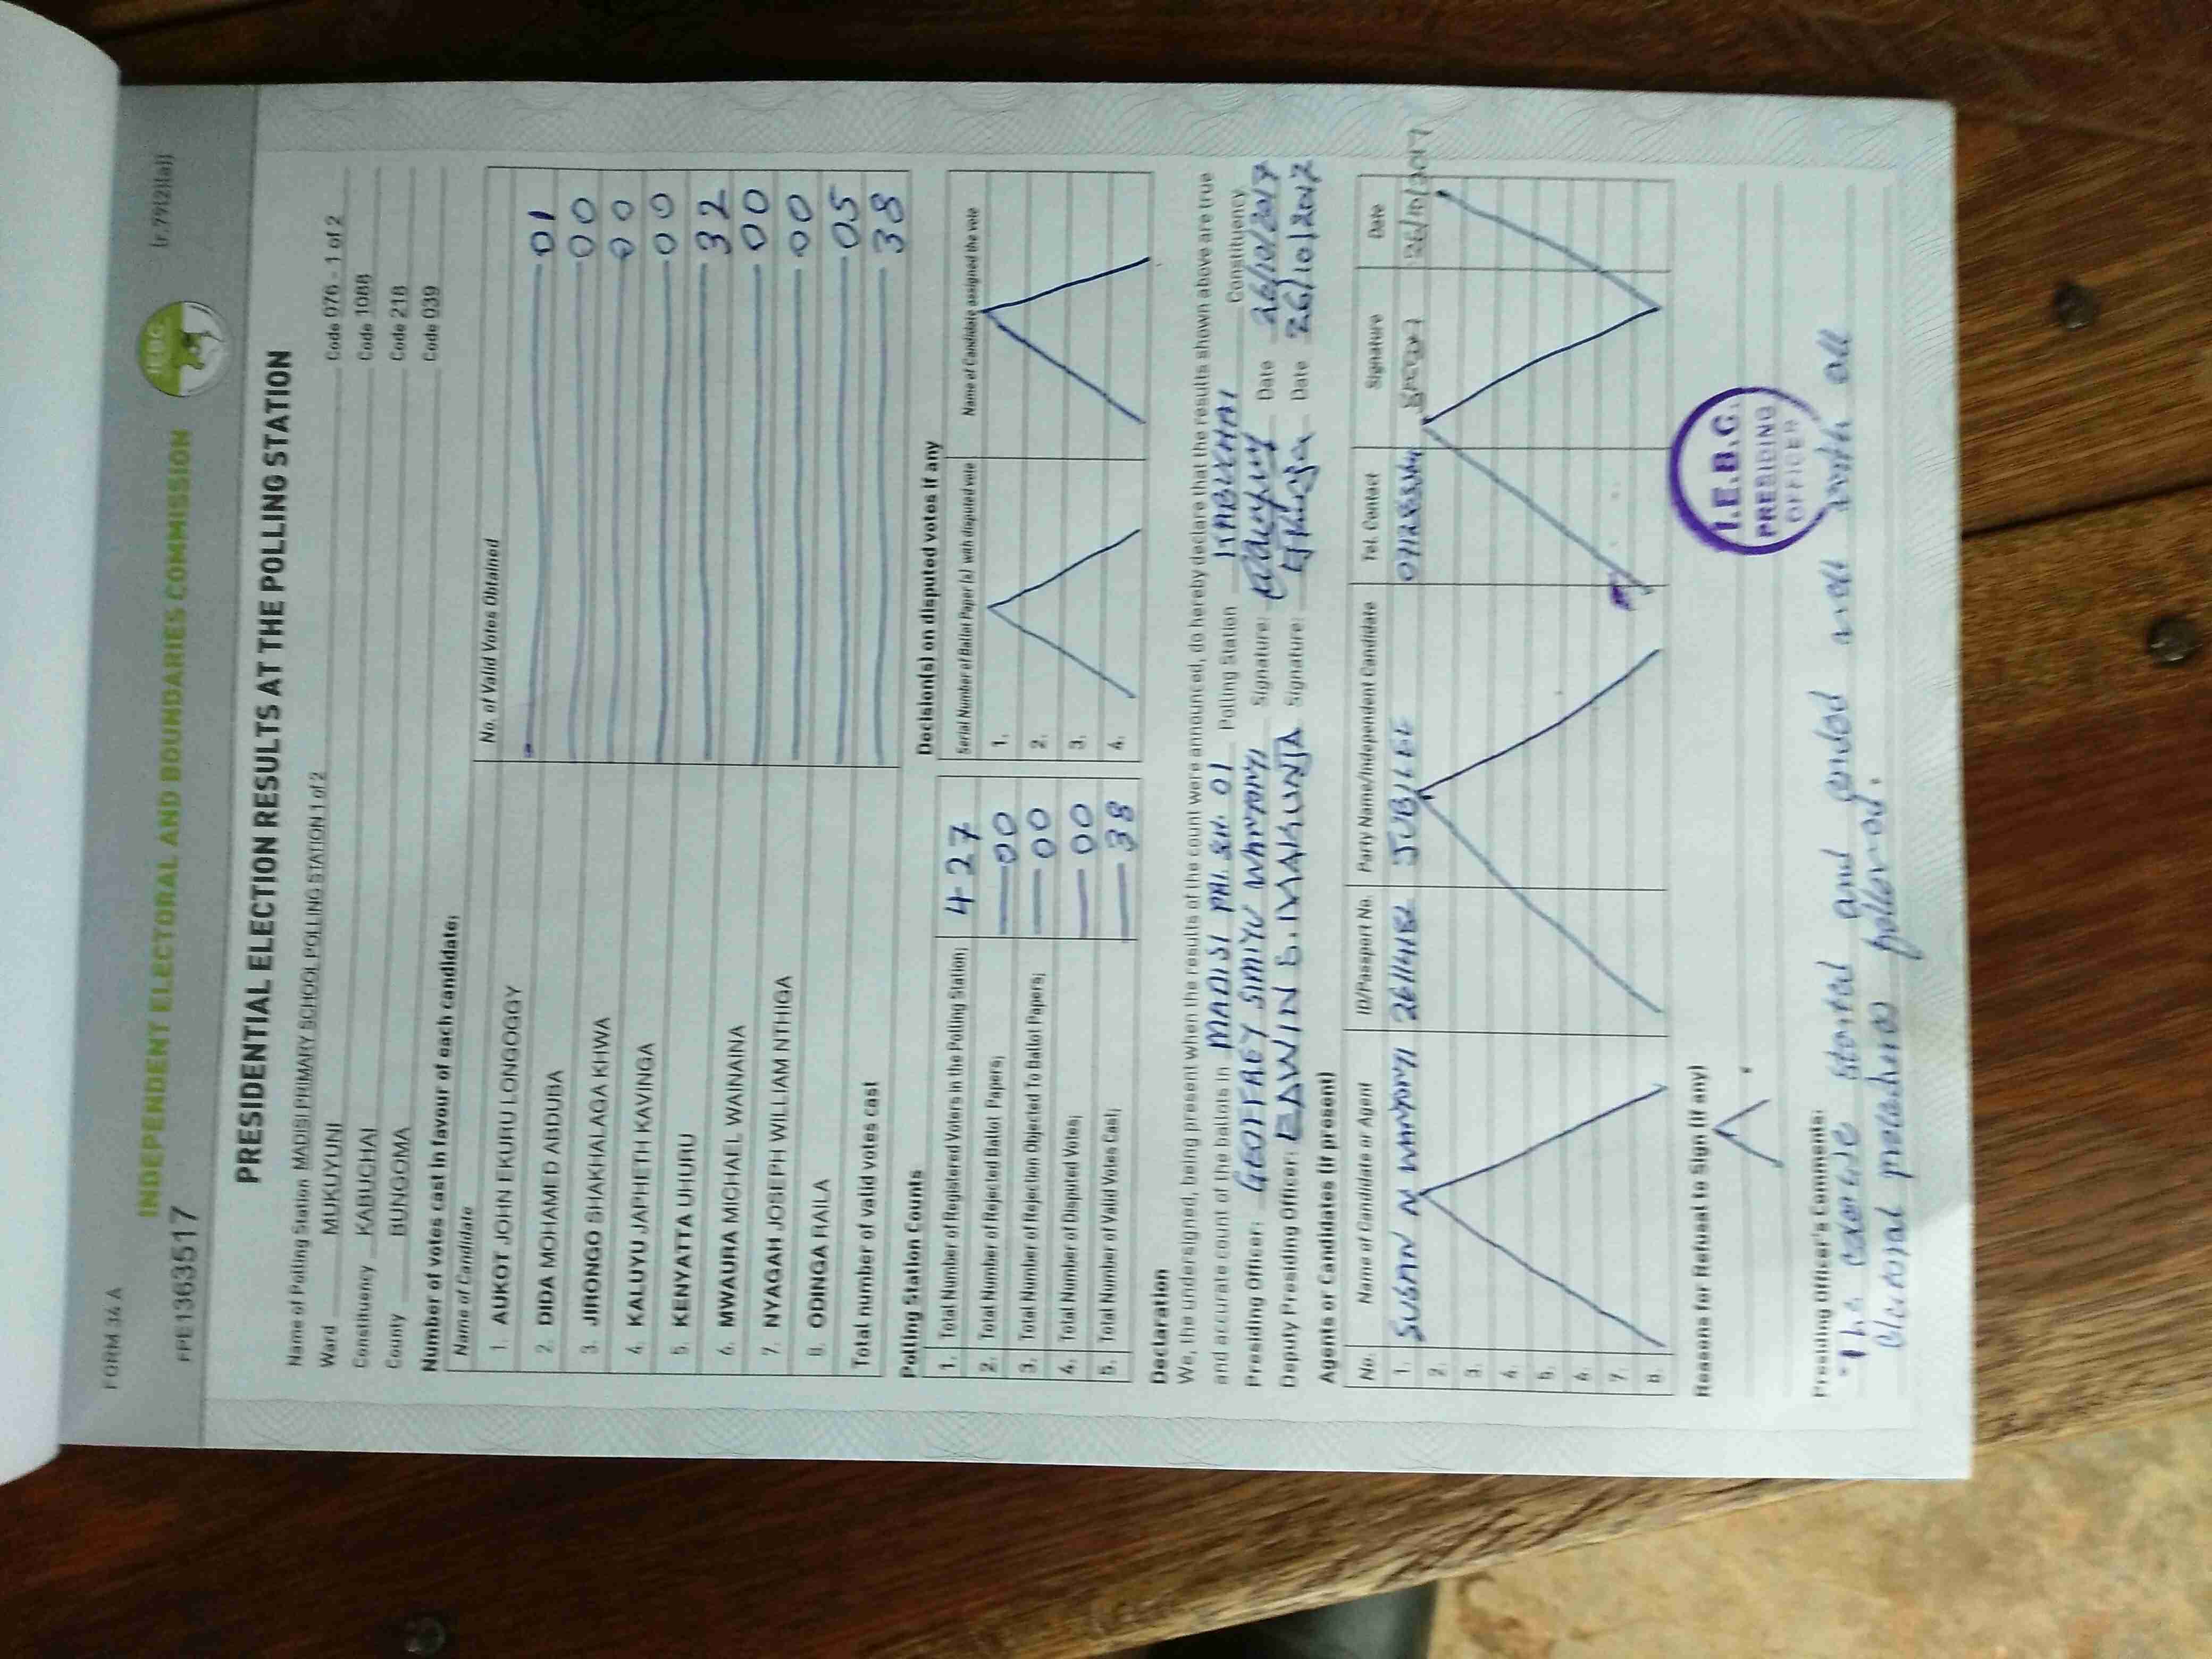 FORM 34 A
[r.79(2)(a)]
IEBC
INDEPENDENT ELECTORAL AND BOUNDARIES COMMISSION
FPE1363517
PRESIDENTIAL ELECTION RESULTS AT THE POLLING STATION
Name of Polling Station MADISI PRIMARY SCHOOL POLLING STATION 1 of 2 Code 076 - 1 of 2
Ward MUKUYUNI Code 1088
Constituency KABUCHAI Code 218
County BUNGOMA Code 039
Number of votes cast in favour of each candidate;
Name of Candidate No. of Valid Votes Obtained
1. AUKOT JOHN EKURU LONGOGGY 01
2. DIDA MOHAMED ABDUBA 00
3. JIRONGO SHAKHALAGA KHWA 00
4. KALUYU JAPHETH KAVINGA 00
5. KENYATTA UHURU 32
6. MWAURA MICHAEL WAINAINA 00
7. NYAGAH JOSEPH WILLIAM NTHIGA 00
8. ODINGA RAILA 05
Total number of valid votes cast 38
Polling Station Counts
1. Total Number of Registered Voters in the Polling Station; 427
2. Total Number of Rejected Ballot Papers; 00
3. Total Number of Rejection Objected To Ballot Papers; 00
4. Total Number of Disputed Votes; 00
5. Total Number of Valid Votes Cast; 38
Decision(s) on disputed votes if any
Serial Number of Ballot Paper (s) with disputed vote Name of Candidate assigned the vote
1.
2.
3.
4.
Declaration
We, the undersigned, being present when the results of the count were announced, do hereby declare that the results shown above are true
and accurate count of the ballots in MADISI PRI. SCH. 01 Polling Station KABUCHAI Constituency
Presiding Officer: GEOFFREY SIMIYU WANYONYI Signature: Date 26/10/2017
Deputy Presiding Officer: EDWIN S. MAKUNJA Signature: Date 26/10/2017
Agents or Candidates (if present)
No. Name of Candidate or Agent ID/Passport No. Party Name/Independent Candidate Tel. Contact Signature Date
1. SUSAN N WANYONYI JUBILEE 26/10/2017
2.
3.
4.
5.
6.
7.
8.
Reasons for Refusal to Sign (if any)
I.E.B.C.
PRESIDING
OFFICER
Presiding Officer's Comments:
The exercise started and ended well with all
electoral procedures followed.